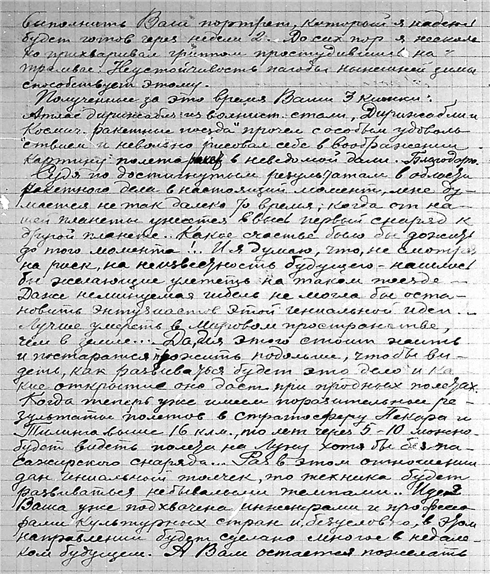 выполнить Ваш портрет, который я надеюсь
будет готов через недели 2. До сих пор я несколь
ко прихварывал гриппом простудившись на
трамвае. Неустойчивость погоды нынешней зимы
способствует этому.
Полученные за это время Ваши 3 книжки:
Атлас дирижабля из волнист. стали, Дирижабли и
Космич. ракетные поезда прочел с особым удоволь
ствием и невольно рисовал себе в воображении
картину полета в неведомой дали. Благодарю.
Судя по достигнутым результатам в области
ракетного дела в настоящий момент, мне ду-
мается не так далеко то время, когда от на-
шей планеты унесется ввысь первый снаряд к
другой планете. Какое счастье было бы дожить
до того момента!.. И я думаю, что, не смотря
на риск, на неизвестность будущего - нашлись
бы желающие улететь на таком поезде -
Даже неминуемая гибель не могла бы оста-
новить энтузиастов этой гениальной идеи...
Лучше умереть в Мировом пространстве,
чем в земле... Да, для этого стоит жить
и постараться прожить подольше, чтобы ви-
деть, как развиваться будет это дело и ка-
кие открытие оно даст при пробных полетах.
Когда теперь уже имеем поразительные ре-
зультаты полетов в стратосферу Пикара и
Тилинга выше 16 км., то лет через 5-10 можно
будет видеть полеты на Луну хотя бы без па-
сажирского снаряда... Раз в этом отношении
дан гениальный толчек, то техника будет
развиваться небывалыми темпами.. Идея
Ваша уже подхвачена инженерами и профессо-
рами культурных стран и, безусловно, в этом
направлении будет сделано многое в недале-
ком будущем. А Вам остается пожелать